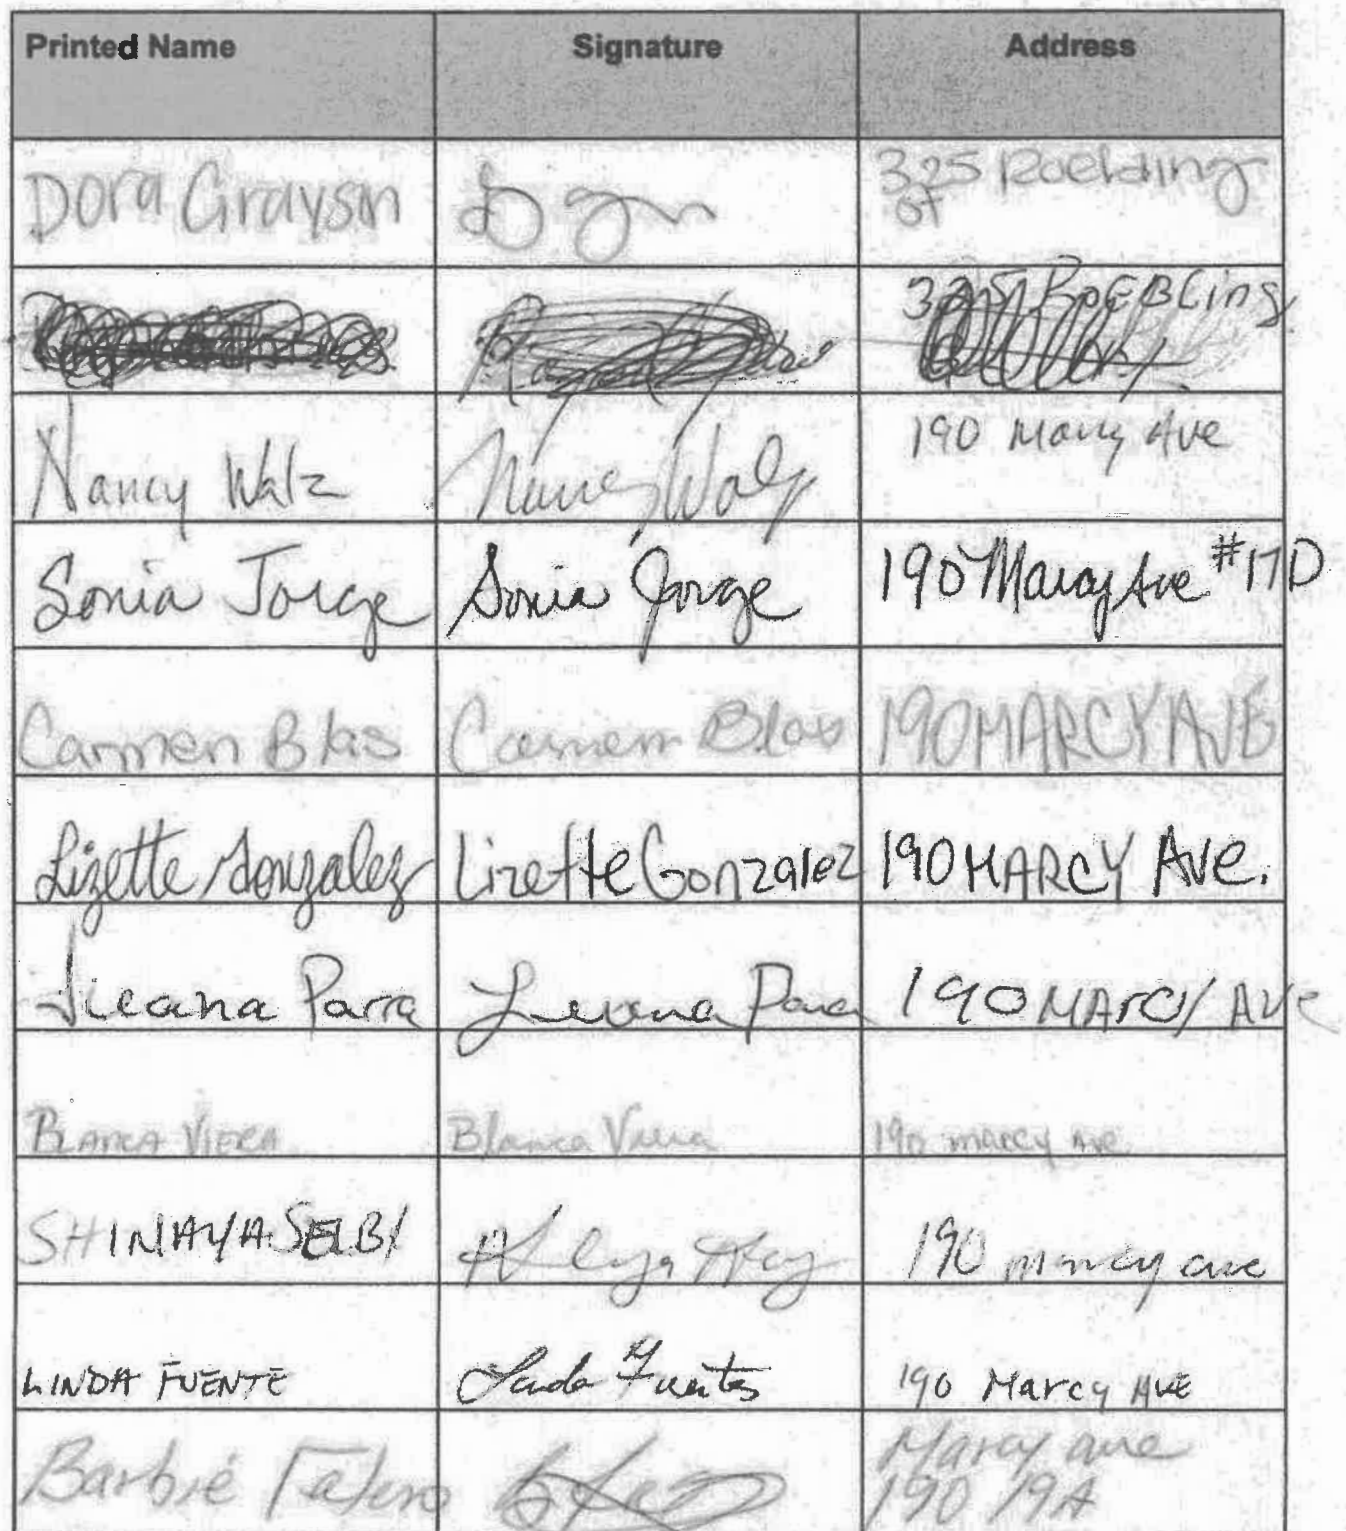 Printed Name Signature Address
Dora Grayson 325 Roebling
st
325 RoEBLing
Nancy Walz Nancy Walz 190 Marcy Ave
Sonia Jorge Sonia Jorge 190 Marcy Ave #17D
Carmen Blas Carmen Blas 190 MARCY AVE
Lizette Gonzalez Lizette Gonzalez 190 MARCY Ave.
Ileana Parra Ileana Parra 190 MARCY AVe
BLANCA VIERA Blanca Viera 190 marcy Ave
SHINAYA SELBY 190 marcy ave
LINDA FUENTE Linda Fuentes 190 Marcy AVE
Barbie Marcy ave
190 19A